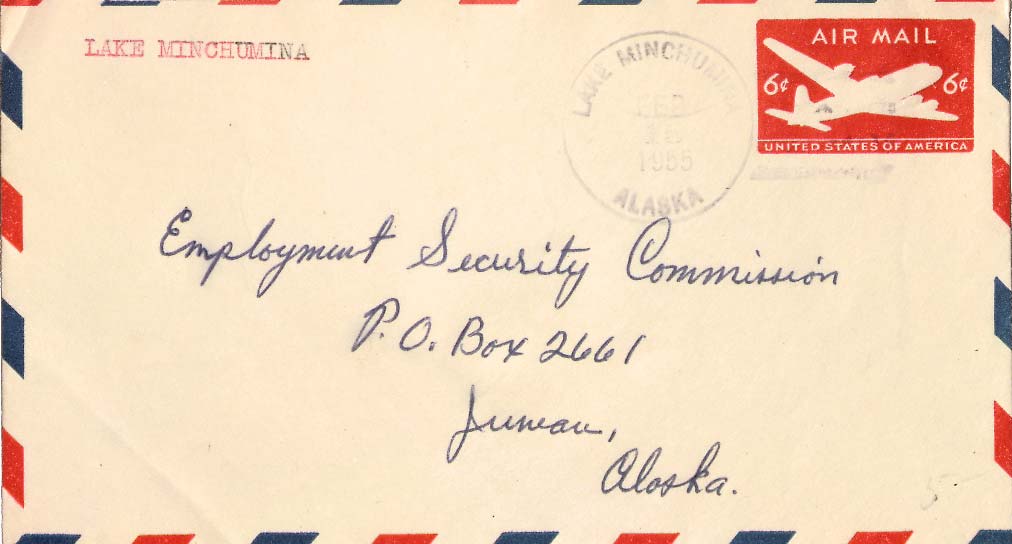 LAKE MINCHUMINA
LAKE MINCHUMINA
FEB
1955
ALASKA
AIR MAIL
6¢ 6¢
UNITED STATES OF AMERICA
Employment Security Commission
P.O. Box 2661
Juneau,
Alaska.